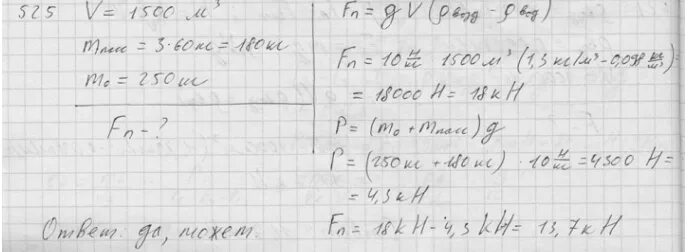 525 V = 1500 м³
mпасс = 3·60кг = 180кг
m₀ = 250кг
Fп - ?
Ответ: да, может.
Fп = gV(ρвозд - ρвод)
Fп = 10 Н/кг 1500 м³ (1,3 кг/м³ - 0,098 кг/м³) =
= 18000 Н = 18 кН
P = (m₀ + mпасс) g
P = (250кг + 180кг) · 10 Н/кг = 4300 Н =
= 4,3 кН
Fп = 18кН - 4,3 кН = 13,7кН